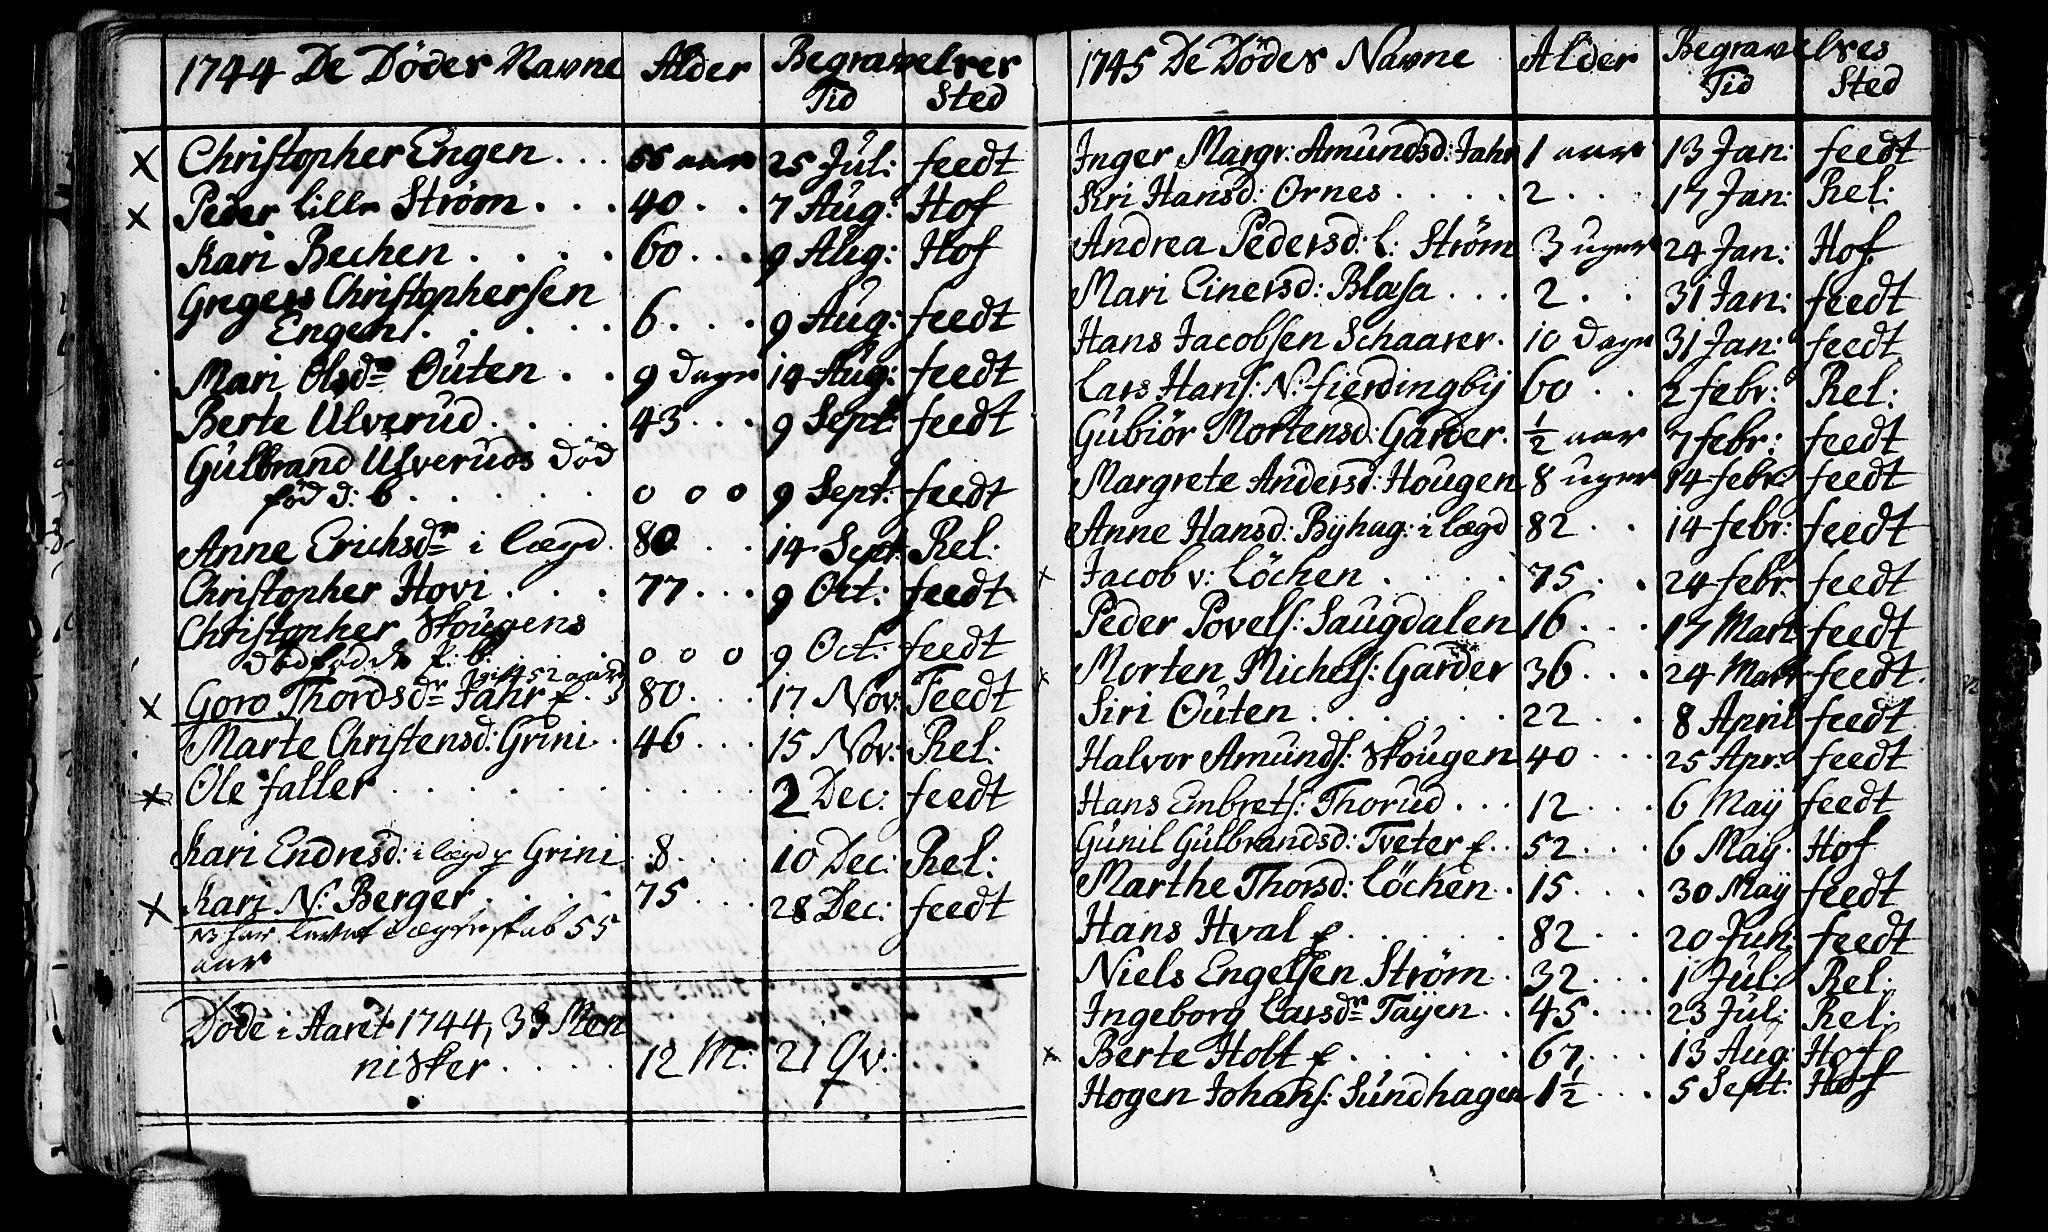 1744 De Dödes Navne Alder Begravelses
Tid Sted
Christopher Engen . . . 55 aar 25 Jul: feedt
Peder lille Strøm . . . 40 . . 7 Aug: Hof
Kari Bechen . . . . 60 . . . 9 Aug: Hof
Gregers Christophersen
Engen . . . . . 6 . . . 9 Aug: feedt
Mari Olsdr Outen . . 9 dage 14 Aug: feedt
Berte Ulverud . . . . 43 . . . 9 Sept: feedt
Gulbrand Ulveruds död
föd d: b . . . . . o o o 9 Sept: feedt
Anne Erichsdr i lægd . 80 . . . 14 Sept: Rel:
Christopher Hovi . . . 77 . . . 9 Oct: feedt
Christopher Skougens
dödfödde b: o o o 9 Oct: feedt
gift 52 aar
Goro Thordsdr Jahr f. 80 . . . 17 Nov: Feedt
Marte Christensd: Grini . 46 . . . 15 Nov: Rel:
Ole faller . . . . . . . . . 2 Dec: feedt
Kari Endresd: i lægd p Grini 8 . . . 10 Dec: Rel:
Kari N: Berger . . . . 75 . . . 28 Dec: feedt
NB har levet i ægteskab 55
aar
Döde i Aaret 1744, 33 Men
nisker . . . . . 12 M: 21 Qv:
1745 De Dödes Navne Alder Begravelses
Tid Sted
Inger Margr: Amundsd: Jahr 1 aar 13 Jan: feedt
Siri Hansd: Ornes . . . . 2 . . . 17 Jan: Rel:
Andrea Pedersd: l: Strøm 3 uger 24 Jan: Hof
Mari Einersd: Blasa . . . 2 . . 31 Jan: feedt
Hans Jacobsen Schaarer . 10 dage 31 Jan: feedt
Lars Hans: N: fierdingbÿ 60 . . 2 febr: Rel:
Gubiör Mortensd: Garder . ½ aar 7 febr: feedt
Margrete Andersd: Hougen 8 uger 14 febr: feedt
Anne Hansd: Bÿhag: i lægd 82 . . 14 febr: feedt
Jacob v: Löchen . . . . 75 . . 24 febr. feedt
Peder Povels: Saugdalen 16 . . . 17 Mart feedt
Morten Michels: Garder 36 . . . 24 Mart feedt
Siri Outen . . . . . . 22 . . 8 April feedt
Halvor Amunds: Skougen 40 . . . 25 Apr: feedt
Hans Enbrets: Thorud . . . 12 . . . 6 Maÿ feedt
Gunil Gulbrandsd: Tveter f . . 52 . . . 6 Maÿ Hof
Marthe Thorsd: Löchen . 15 . . . 30 Maÿ feedt
Hans Hval f . . . . . . 82 . . 20 Jun: feedt
Niels Engelsen Strøm . 32 . . . 1 Jul: Rel:
Ingeborg Larsdr Taÿen . . 45 . . . 23 Jul: Rel:
Berte Holt f . . . . . . 67 . . . 13 Aug: Hof
Hogen Johans: Sundhagen 1½ . . . 5 Sept: Hof